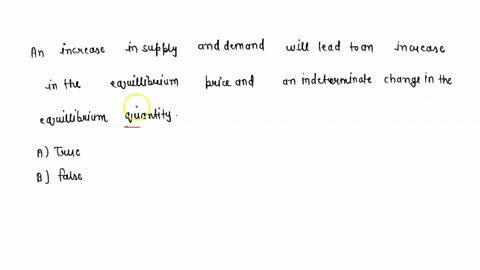 An increase in supply and demand will lead to an increase
in the equilibrium price and an indeterminate change in the
equilibrium quantity.
A) True
B) false